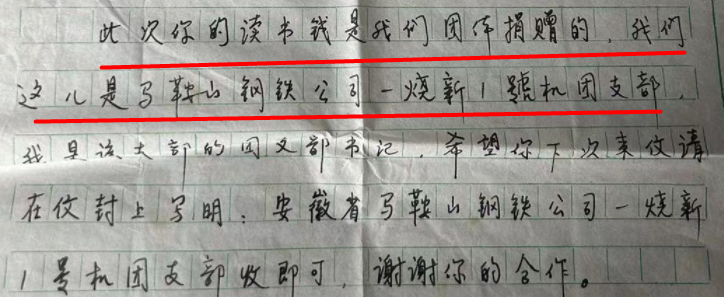 此次你的读书钱是我们团体捐赠的，我们
这儿是马鞍山钢铁公司一烧新1號机团支部，
我是该支部的团支部书记，希望你下次来信请
在信封上写明：安徽省马鞍山钢铁公司一烧新
1号机团支部收即可，谢谢你的合作。